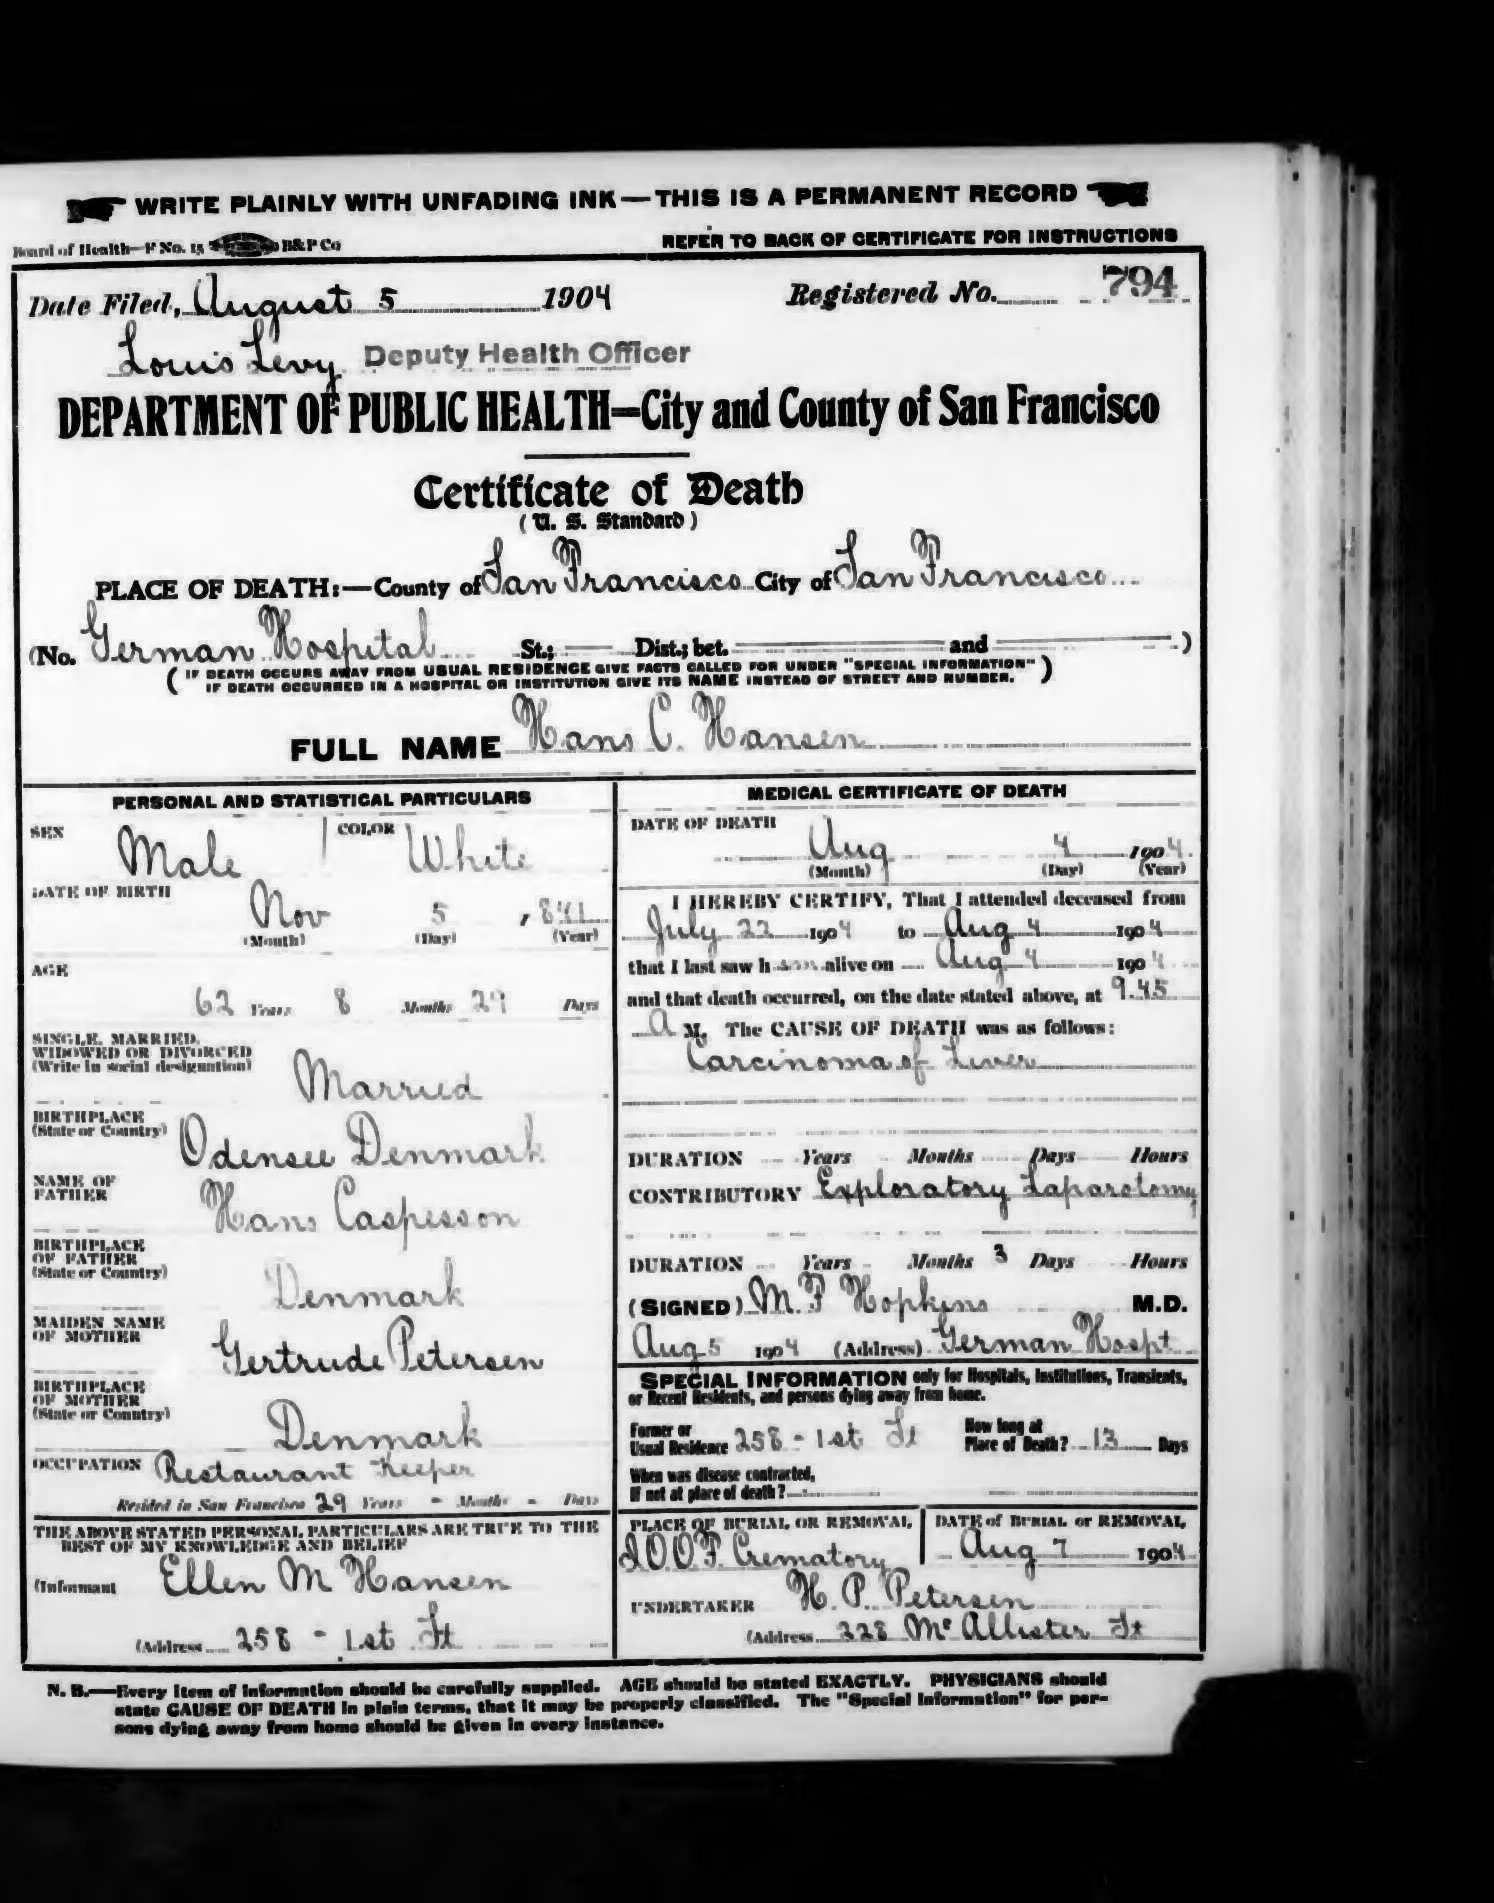 WRITE PLAINLY WITH UNFADING INK—THIS IS A PERMANENT RECORD
Board of Health—F No. 15 B&P Co
REFER TO BACK OF CERTIFICATE FOR INSTRUCTIONS
Date Filed, August 5 1904
Registered No. 794
Louis Levy Deputy Health Officer
DEPARTMENT OF PUBLIC HEALTH—City and County of San Francisco
Certificate of Death
(U. S. Standard)
PLACE OF DEATH:—County of San Francisco City of San Francisco
(No. German Hospital St.; Dist.; bet. and )
(IF DEATH OCCURS AWAY FROM USUAL RESIDENCE GIVE FACTS CALLED FOR UNDER "SPECIAL INFORMATION"
IF DEATH OCCURRED IN A HOSPITAL OR INSTITUTION GIVE ITS NAME INSTEAD OF STREET AND NUMBER.)
FULL NAME Hans C. Hansen
PERSONAL AND STATISTICAL PARTICULARS
SEX Male COLOR White
DATE OF BIRTH
Nov 5, 1841
(Month) (Day) (Year)
AGE
62 Years 8 Months 29 Days
SINGLE, MARRIED,
WIDOWED OR DIVORCED
(Write in social designation)
Married
BIRTHPLACE
(State or Country)
Odensee Denmark
NAME OF
FATHER
Hans Caspesson
BIRTHPLACE
OF FATHER
(State or Country)
Denmark
MAIDEN NAME
OF MOTHER
Gertrude Petersen
BIRTHPLACE
OF MOTHER
(State or Country)
Denmark
OCCUPATION Restaurant Keeper
Resided in San Francisco 29 Years - Months - Days
THE ABOVE STATED PERSONAL PARTICULARS ARE TRUE TO THE
BEST OF MY KNOWLEDGE AND BELIEF
(Informant Ellen M Hansen
(Address 258 - 1st St
MEDICAL CERTIFICATE OF DEATH
DATE OF DEATH
Aug 4 1904
(Month) (Day) (Year)
I HEREBY CERTIFY, That I attended deceased from
July 22 1904 to Aug 4 1904
that I last saw h alive on Aug 4 1904
and that death occurred, on the date stated above, at 9.45
A M. The CAUSE OF DEATH was as follows:
Carcinoma of Liver
DURATION Years Months Days Hours
CONTRIBUTORY Exploratory Laparotomy
DURATION Years Months 3 Days Hours
(SIGNED) M. F Hopkins M.D.
Aug 5 1904 (Address) German Hospt.
SPECIAL INFORMATION only for Hospitals, Institutions, Transients,
or Recent Residents, and persons dying away from home.
Former or
Usual Residence 258 - 1st St
How long at
Place of Death? 13 Days
When was disease contracted,
If not at place of death?
PLACE OF BURIAL OR REMOVAL
I.O.O.F. Crematory
DATE of BURIAL or REMOVAL
Aug 7 1904
UNDERTAKER H. P. Petersen
(Address 228 McAllister St
N. B.—Every item of information should be carefully supplied. AGE should be stated EXACTLY. PHYSICIANS should
state CAUSE OF DEATH in plain terms, that it may be properly classified. The "Special Information" for per-
sons dying away from home should be given in every instance.